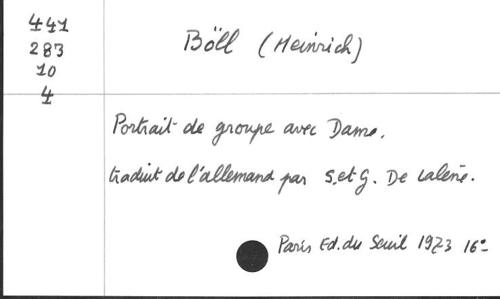 441
283
10
4
Böll (Heinrich)
Portrait de groupe avec Dame.
traduit de l'allemand par S. et G. De Lalène.
Paris Ed. du Seuil 1973 16°